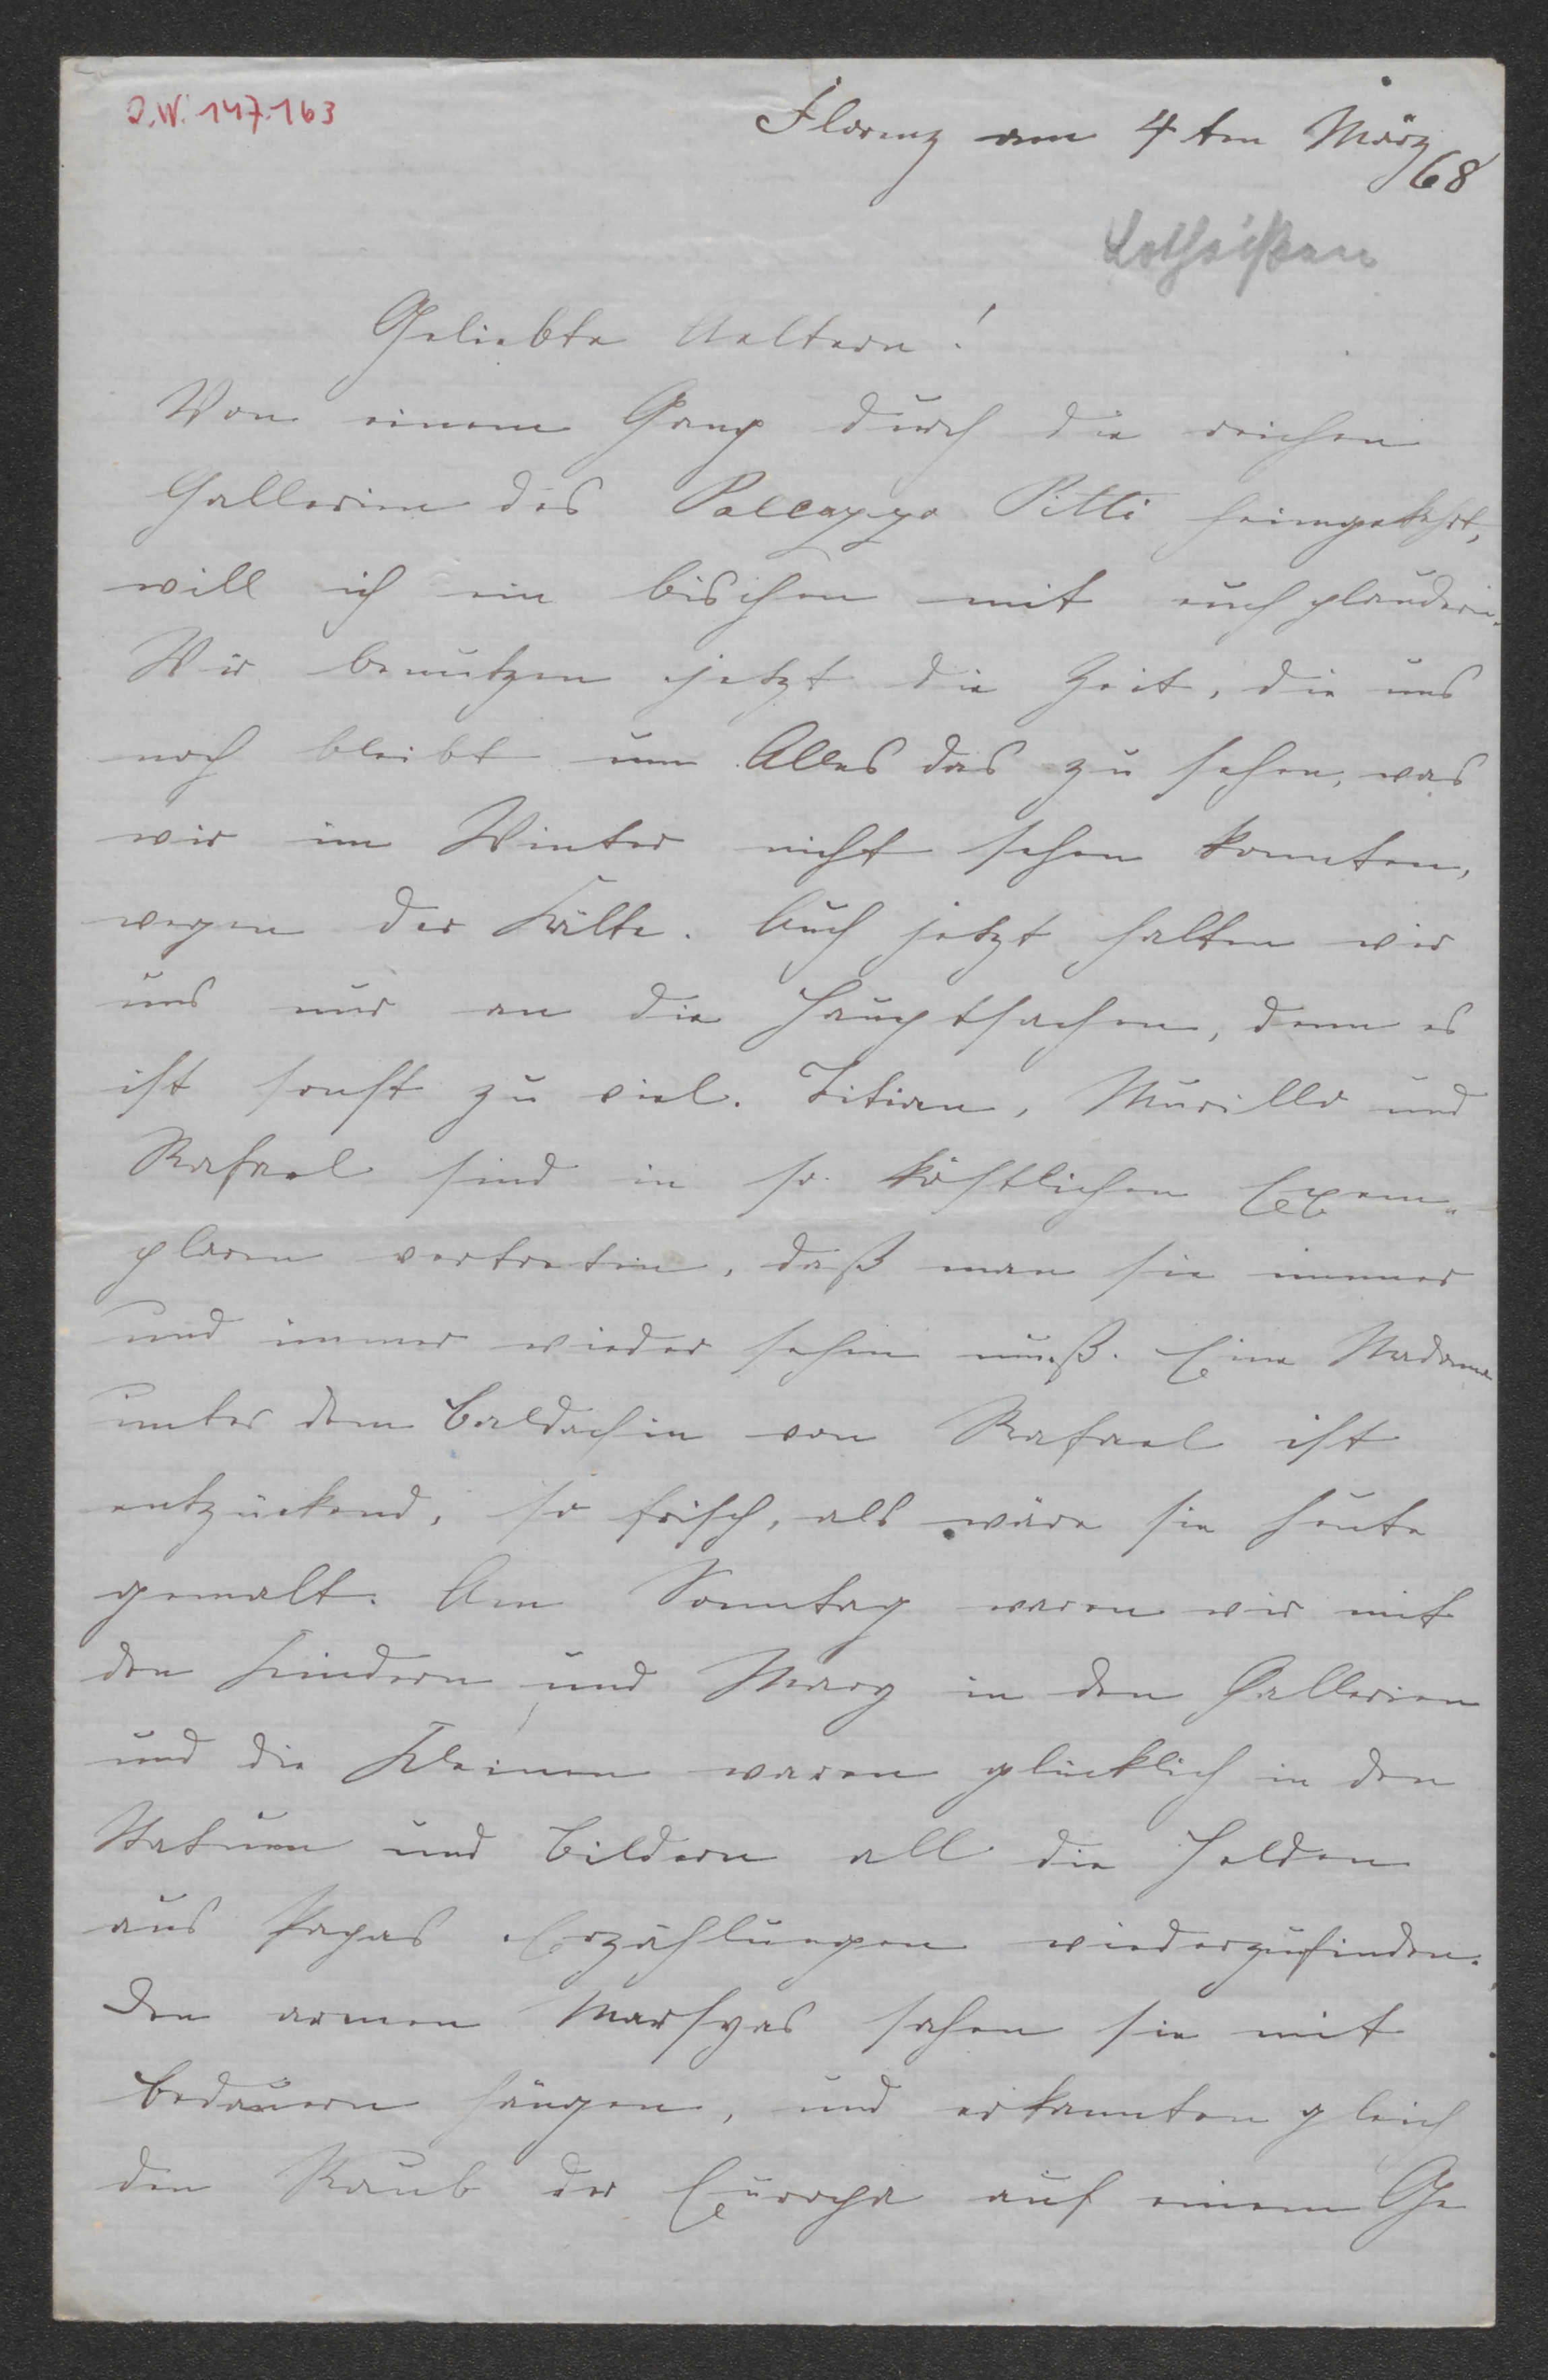 O.W. 147.163
Florenz am 4ten März
68
Lotheißen
Geliebte Aeltern!
Von einem Gang durch die reichen
Gallerien des Palazzo Pitti heimgekehrt,
will ich ein bischen mit euch plaudern.
Wir benutzen jetzt die Zeit, die uns
noch bleibt um Alles das zu sehen, was
wir im Winter nicht sehen konnten,
wegen der Kälte. Auch jetzt halten wir
uns nur an die Hauptsachen, denn es
ist sonst zu viel. Titian, Murillo und
Rafael sind in so köstlichen Exem-
plaren vertreten, daß man sie immer
und immer wieder sehen muß. Eine Madonna
unter dem Baldachin von Rafael ist
entzückend, so frisch, als wäre sie heute
gemalt. Am Sonntag waren wir mit
den Kindern und Mary in den Gallerien
und die Kleinen waren glücklich in den
Statuen und Bildern all die Helden
aus Papas Erzählungen wiederzufinden.
Den armen Marsyas sahen sie mit
Bedauern hängen, und erkannten gleich
den Raub der Europa auf einem Ge